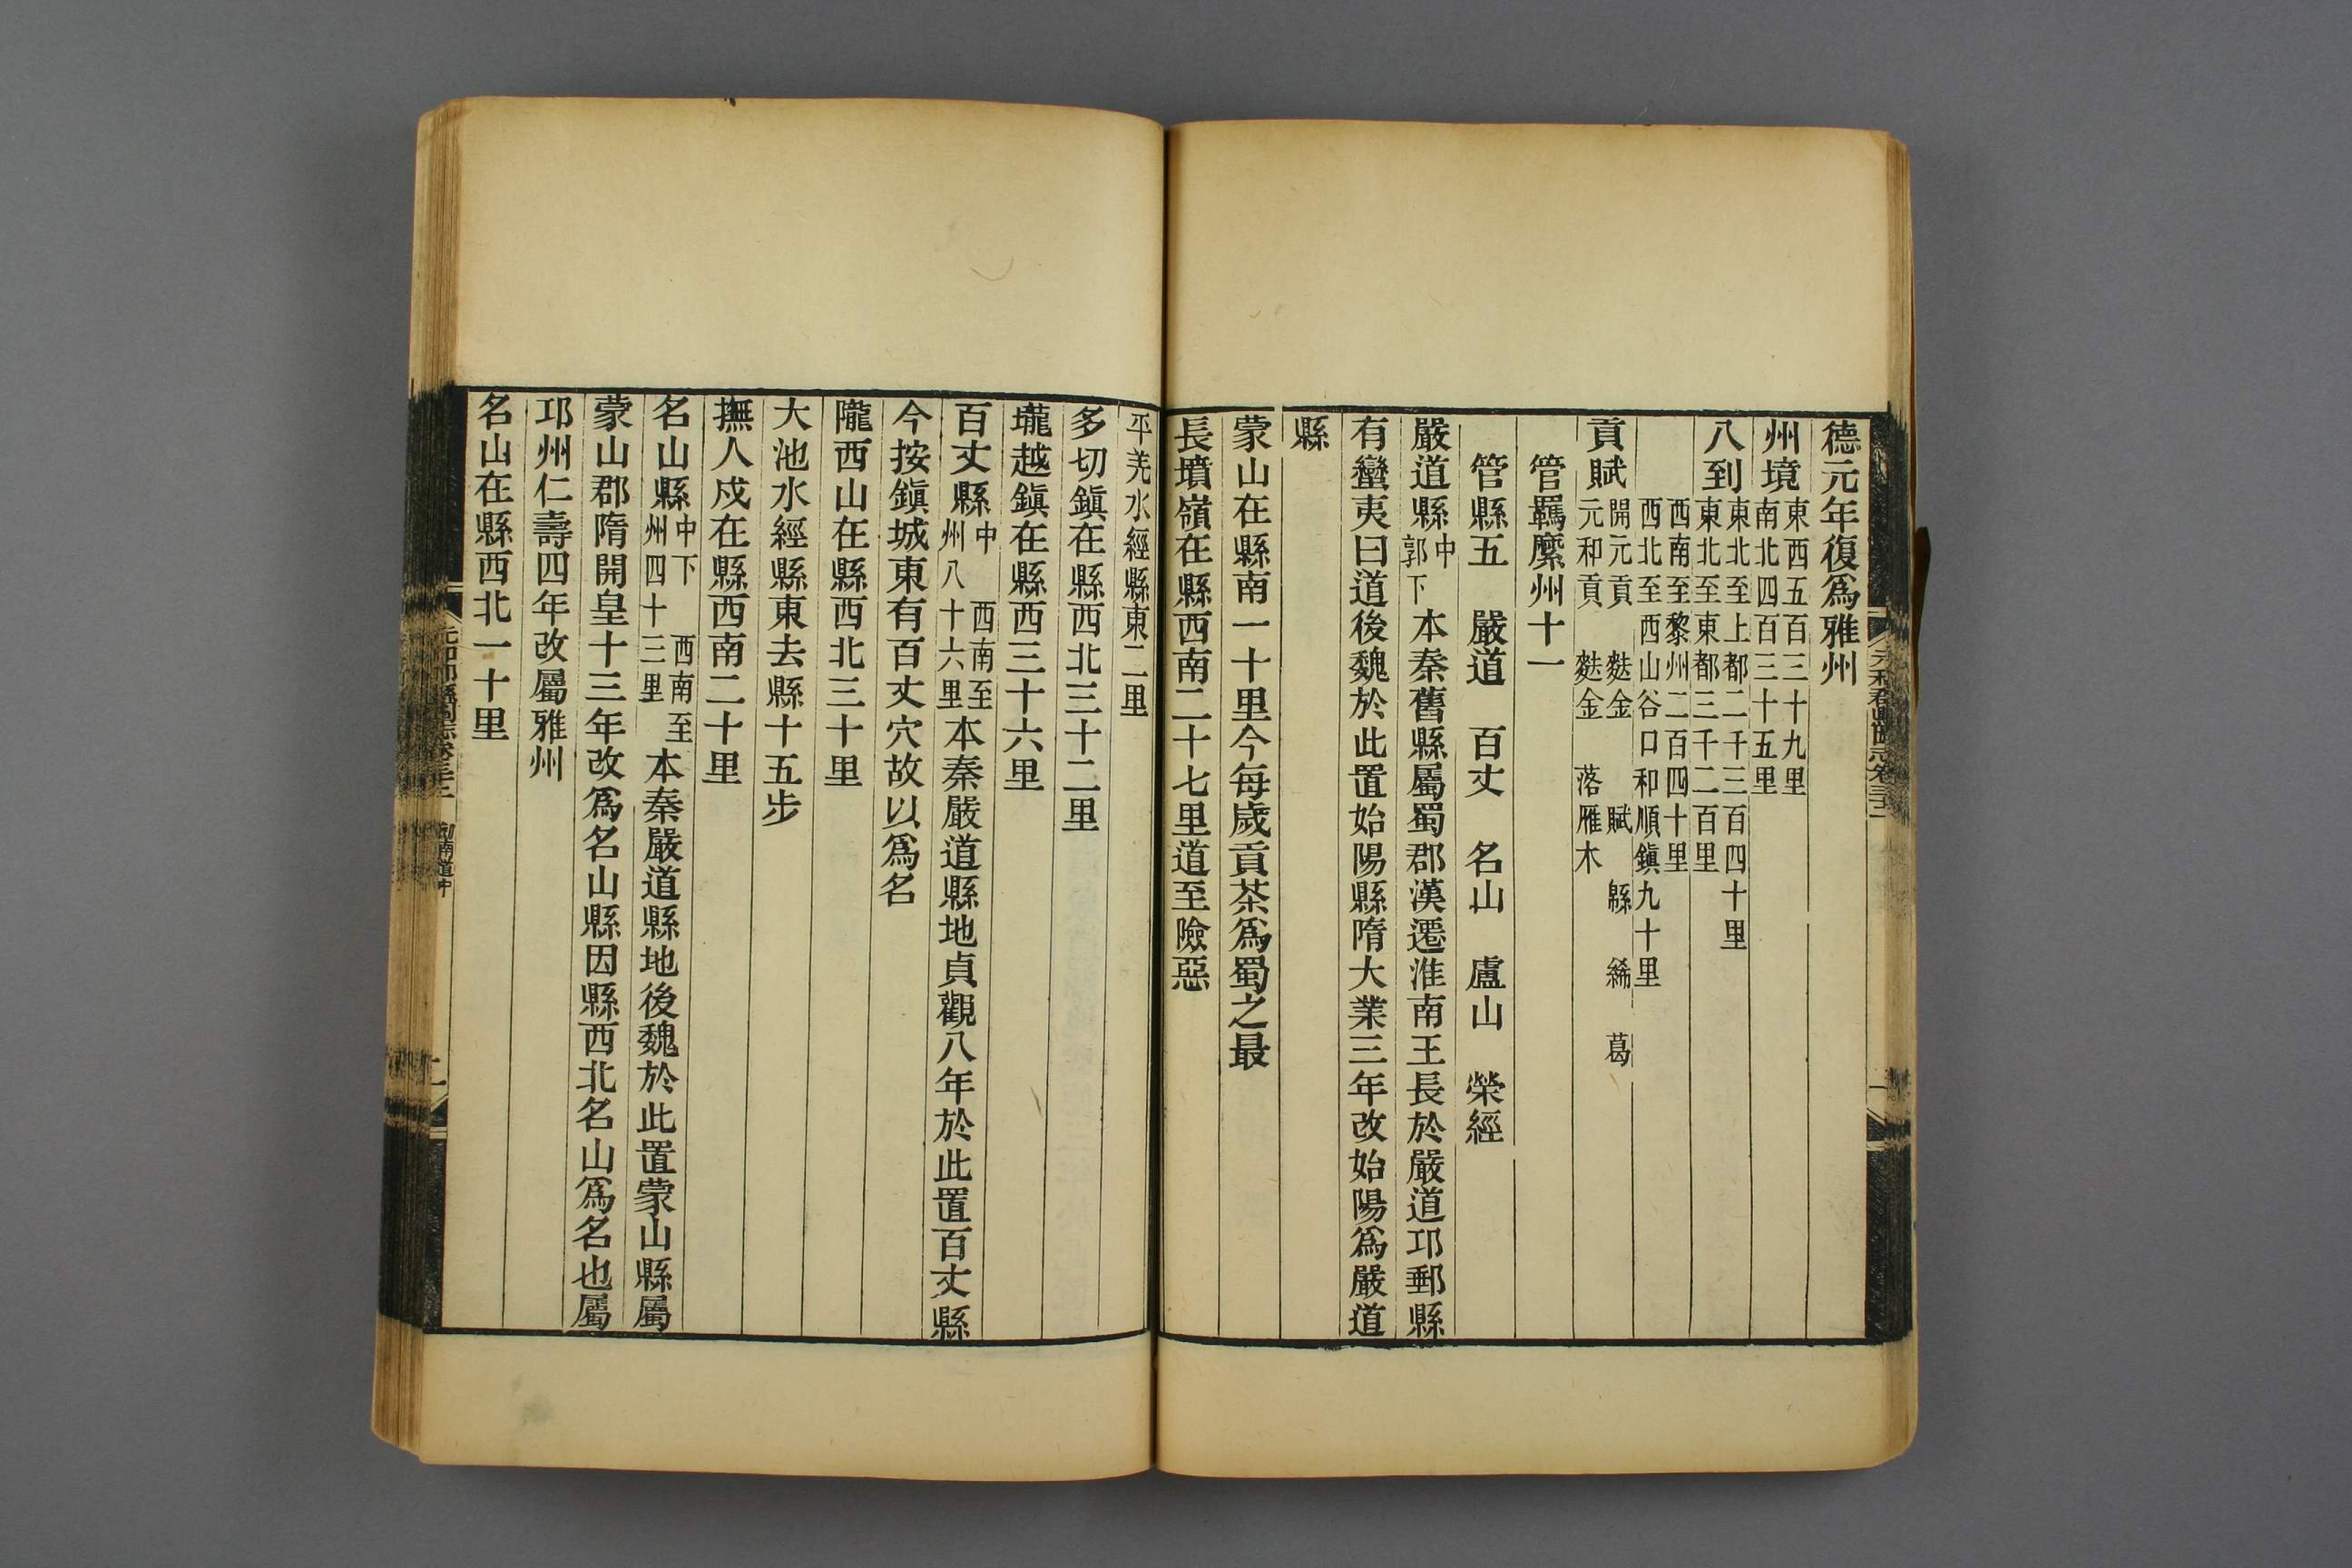 德元年復爲雅州
州境東西五百三十九里
南北四百三十五里
八到東北至上都二千三百四十里
東北至東都三千二百里
西南至黎州二百四十里
西北至西山谷口和順鎭九十里
貢賦開元貢 麩金 賦 緜 絺 葛
元和貢 麩金 落雁木
管羈縻州十一
管縣五 嚴道 百丈 名山 盧山 榮經
嚴道縣中 郭下 本秦舊縣屬蜀郡漢遷淮南王長於嚴道邛郵縣
有蠻夷曰道後魏於此置始陽縣隋大業三年改始陽爲嚴道
縣
蒙山在縣南一十里今每歲貢茶爲蜀之最
長墳嶺在縣西南二十七里道至險惡
平羌水經縣東二里
多切鎭在縣西北三十二里
壠越鎭在縣西三十六里
百丈縣中 西南至州八十六里本秦嚴道縣地貞觀八年於此置百丈縣
今按鎭城東有百丈穴故以爲名
隴西山在縣西北三十里
大池水經縣東去縣十五步
撫人戍在縣西南二十里
名山縣中下 西南至州四十三里 本秦嚴道縣地後魏於此置蒙山縣屬
蒙山郡隋開皇十三年改爲名山縣因縣西北名山爲名也屬
邛州仁壽四年改屬雅州
名山在縣西北一十里